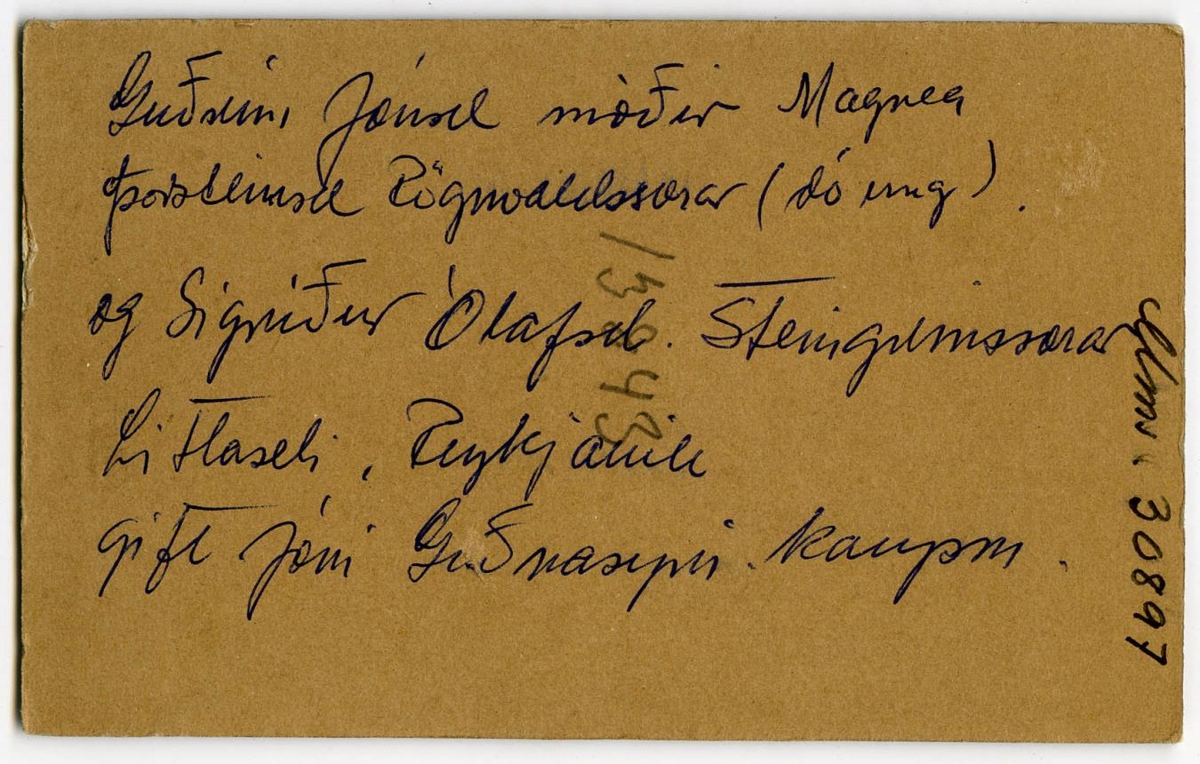 Guðrún Jónsd móðir Magneu
Þorsteinsd Rögnvaldssonar (dó ung).
og Sigríður Ólafsd. Steingrímssonar
Litlaseli, Reykjavík
gift Jóni Guðnasyni kaupm.
Mms. 30897